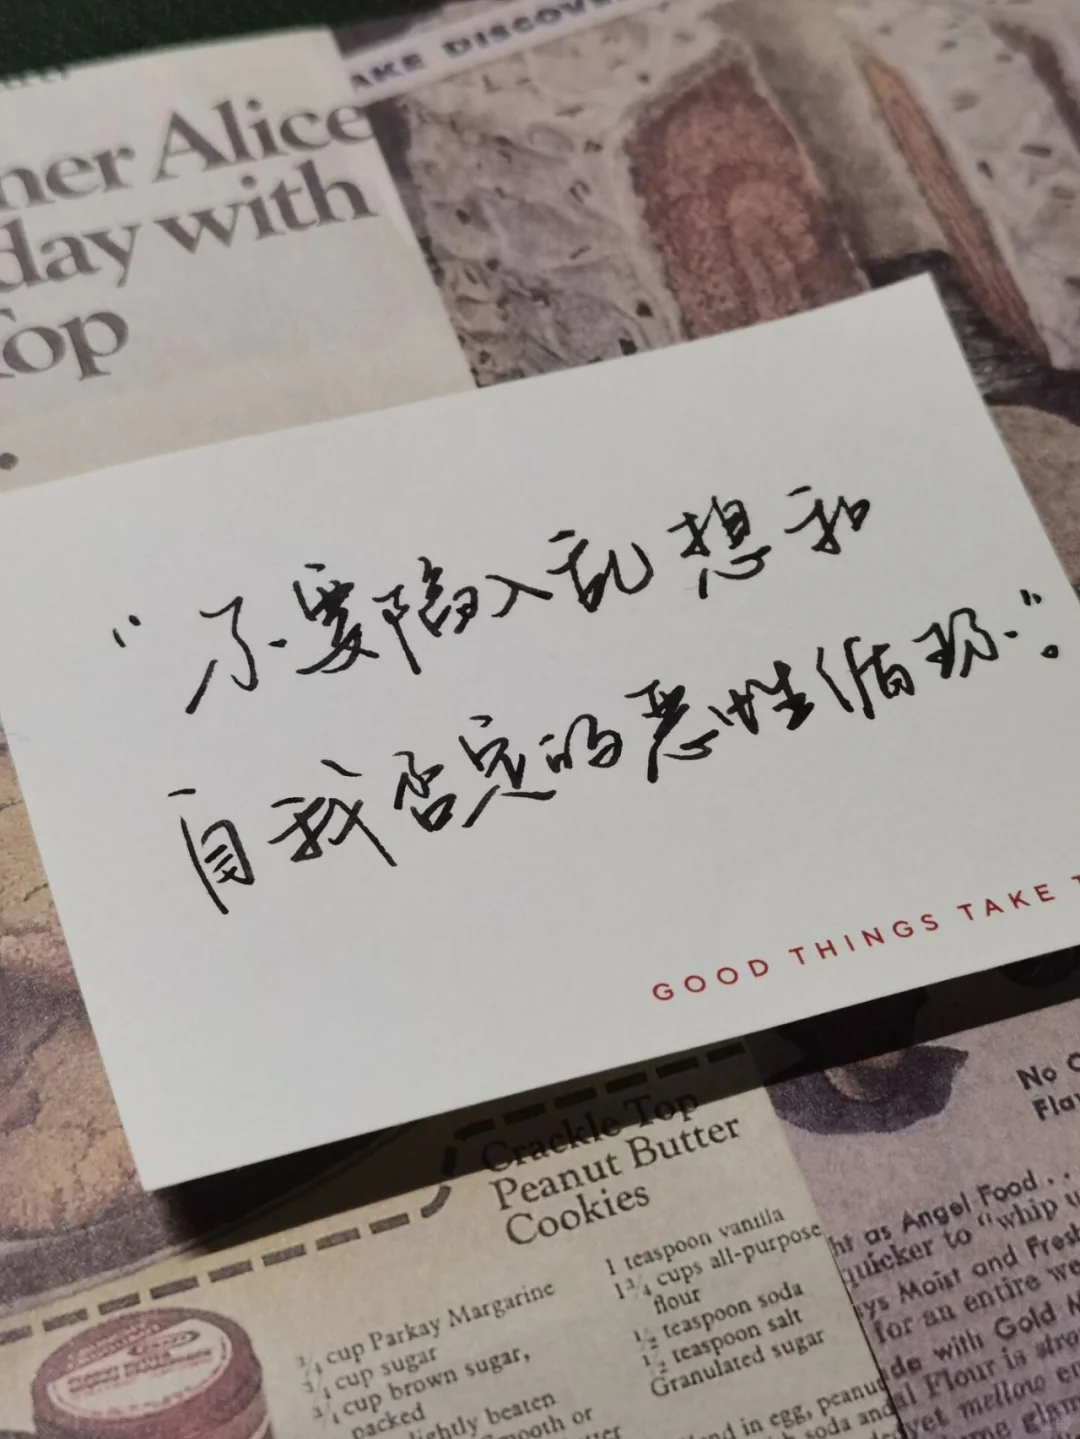 AKE DISCOVE
ner Alice
day with
Top
“不要陷入乱想和
自我否定的恶性循环”。
GOOD THINGS TAKE T
Crackle Top
Peanut Butter
Cookies
1 teaspoon vanilla
1 3/4 cups all-purpose
flour
1/2 teaspoon soda
1/2 teaspoon salt
Granulated sugar
3/4 cup Parkay Margarine
3/4 cup sugar
3/4 cup brown sugar,
packed
lightly beaten
mooth or
nd in egg, peanut
soda and
No
Fla
ht as Angel Food . .
quicker to "whip u
ys Moist and Fresh
for an entire we
de with Gold M
al Flour is
yet mellow